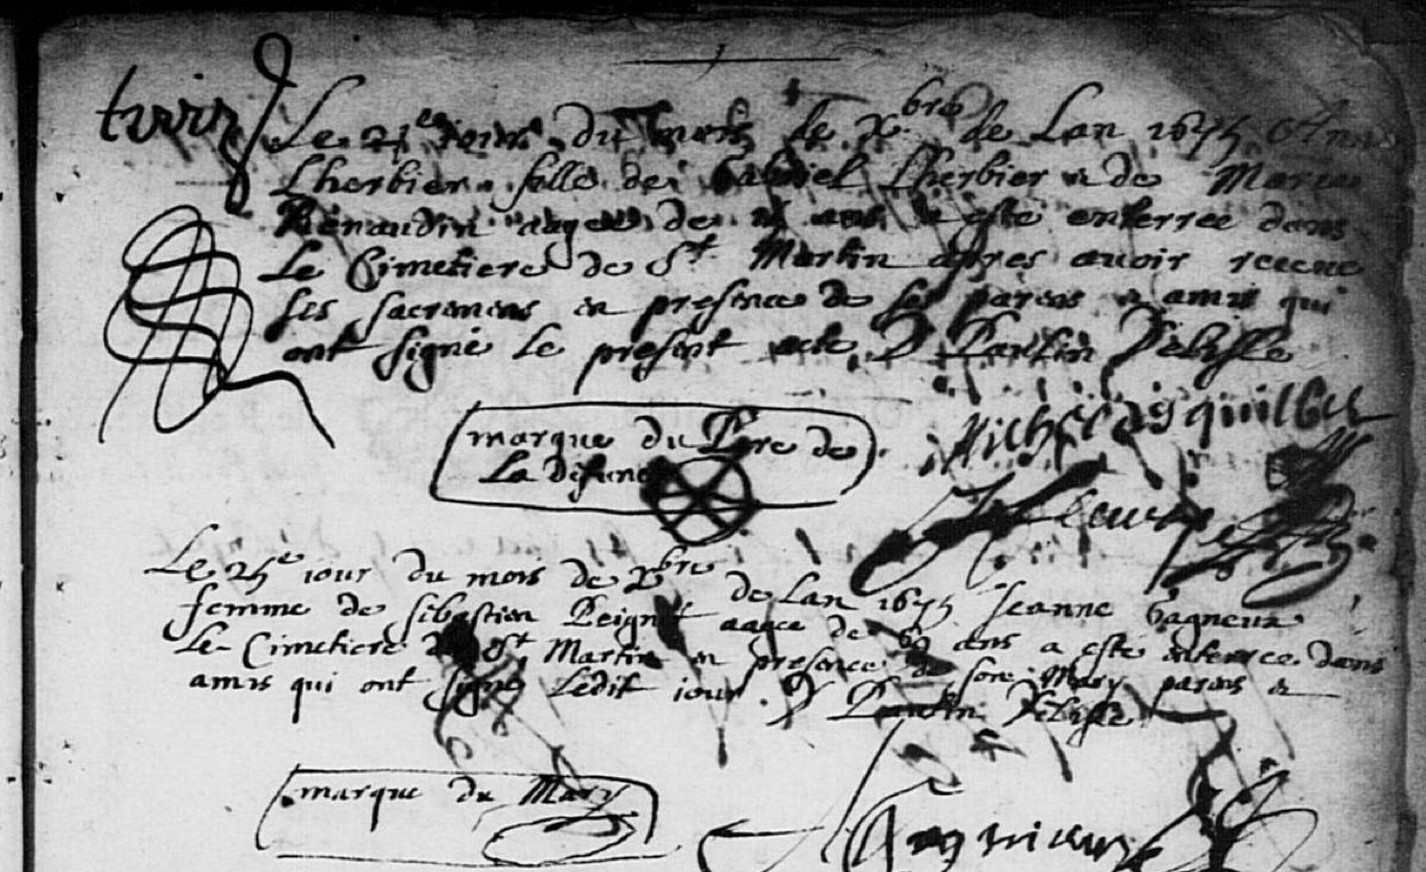 Le 21e iour du mois de Xbre de Lan 1675 Anne
Lherbier fille de Gabriel Lherbier & de Marie
Renaudin aagee de ans a este enterree dans
Le Cimetiere de St Martin apres avoir receue
ses sacremens en presence de ses parens & amis qui
ont signé le present acte. D Pantin Delisle
marque du Pere de
La Defuncte
Michel
Le 25e iour du mois de Xbre de Lan 1675 Jeanne Gagneux
femme de sebastien Peignet aagee de 60 ans a este enterree dans
Le Cimetiere de St Martin en presence de son Mary parens &
amis qui ont signé Ledit iour. D Pantin Delisle
marque du Mary